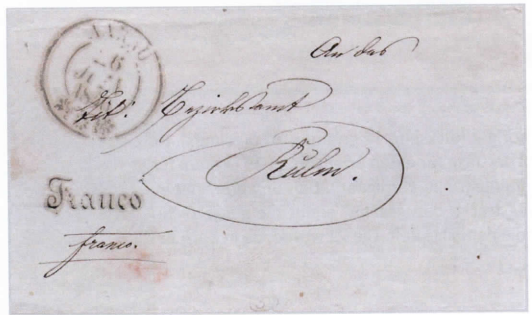 AARAU
6
An das
Tit: Bezirksamt
Kulm.
Franco
franco.